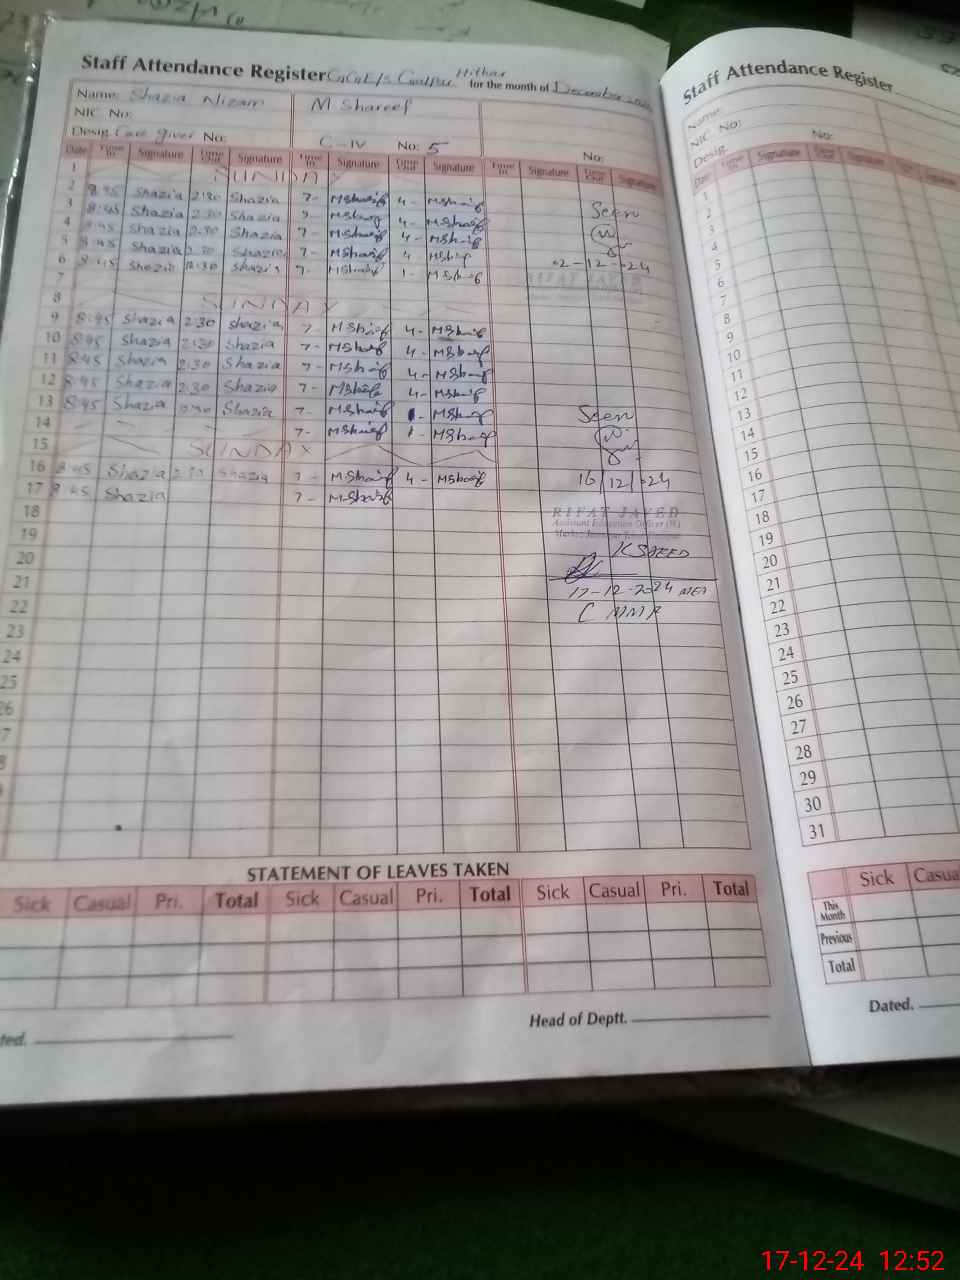 Staff Attendance Register Hithar for the month of December
Name: Shazia Nizam M Shareef
NIC No:
Desig. Care giver No: C-IV No: 5 No:
Date Time In Signature Time Out Signature Time In Signature Time Out Signature Time In Signature Time Out Signature
1 SUNDAY
2 8:45 Shazia 2:30 Shazia 7- 4-
3 8:45 Shazia 2:30 Shazia 7- 4- Seen
4 8:45 Shazia 2:30 Shazia 7- 4-
5 8:45 Shazia 2:30 Shazia 7- 4-
6 8:45 Shazia 12:30 Shazia 7- 1- 02-12-024
7 RIFAT JAVED
8 SUNDAY
9 8:45 Shazia 2:30 Shazia 7- 4-
10 8:45 Shazia 2:30 Shazia 7- 4-
11 8:45 Shazia 2:30 Shazia 7- 4-
12 8:45 Shazia 2:30 Shazia 7- 4-
13 8:45 Shazia 12:30 Shazia 7- 1- Seen
14 7- 1-
15 SUNDAY
16 8:45 Shazia 2:30 Shazia 7- 4- 16/12/024
17 8:45 Shazia 7-
18 RIFAT JAVED
Assistant Education Officer (M)
19
20 K SAEED
21 17-12-2024 MEA
22
23
24
25
26
27
28
STATEMENT OF LEAVES TAKEN
Sick Casual Pri. Total Sick Casual Pri. Total Sick Casual Pri. Total
Head of Deptt.
Staff Attendance Register
Name:
NIC No:
Desig. No:
Date Time In Signature Time Out Signature
1
2
3
4
5
6
7
8
9
10
11
12
13
14
15
16
17
18
19
20
21
22
23
24
25
26
27
28
29
30
31
Sick Casual
This Month
Previous
Total
Dated.
17-12-24 12:52